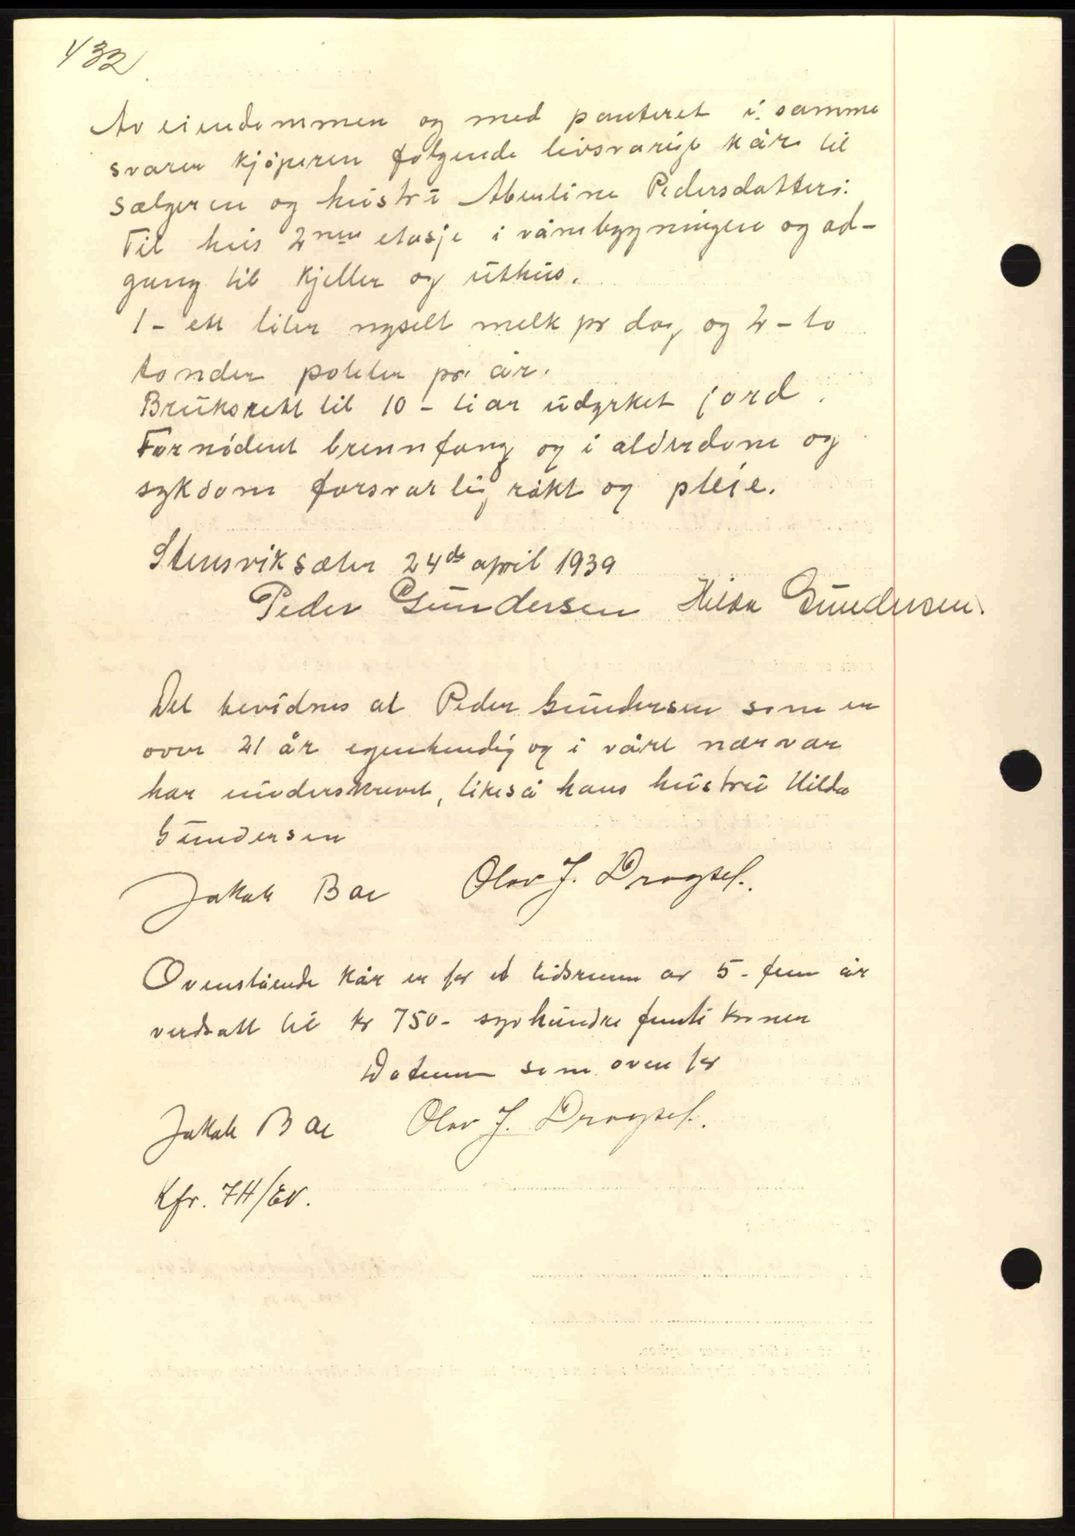 432
Av eiendommen og med panteret i samme
svarer kjøperen følgende livsvarige kår til
sælgeren og hustru Abeline Pedersdatter:
Til hus 2nen etasje i våmbygningen og ad-
gang til kjeller og uthus.
1 - ett liter nysilt melk pr dag og 2 - to
tønder poteter pr år.
Bruksrett til 10 - ti ar udyrket jord.
Fornødent brennfang og i alderdom og
sykdom forsvarlig røkt og pleie.
Stensviksæter 24de april 1939
Peder Gundersen Hilda Gundersen.
Det bevidnes at Peder Gundersen som er
over 21 år egenhendig og i vårt nærvær
har underskrevet, likeså hans hustru Hilda
Gundersen
Jakob Bae Olav J. Dragset.
Ovenstående kår er for et tidsrum av 5 - fem år
verdsatt til kr 750 - syvhundre femti kroner
Datum som oven for
Jakob Bae Olav J. Dragset.
Kfr. 7H/EN.